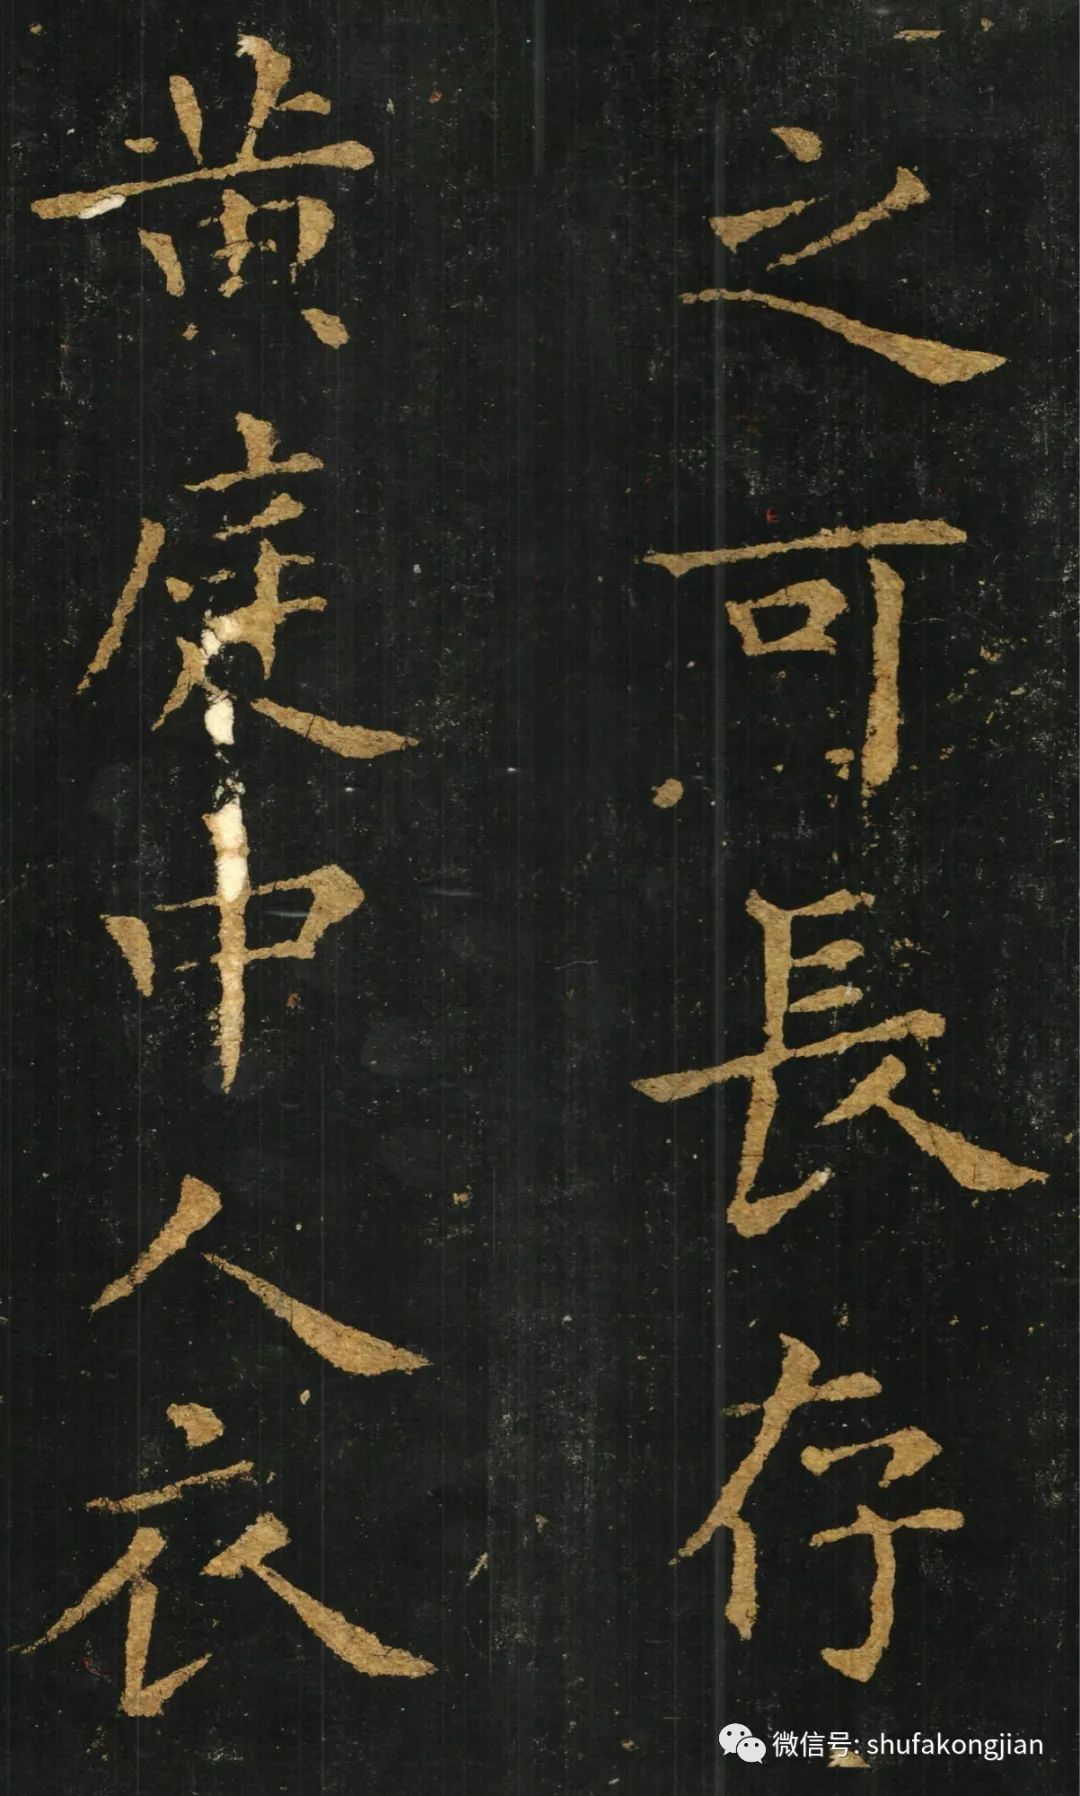 之可長存
黄庭中人衣
微信号: shufakongjian